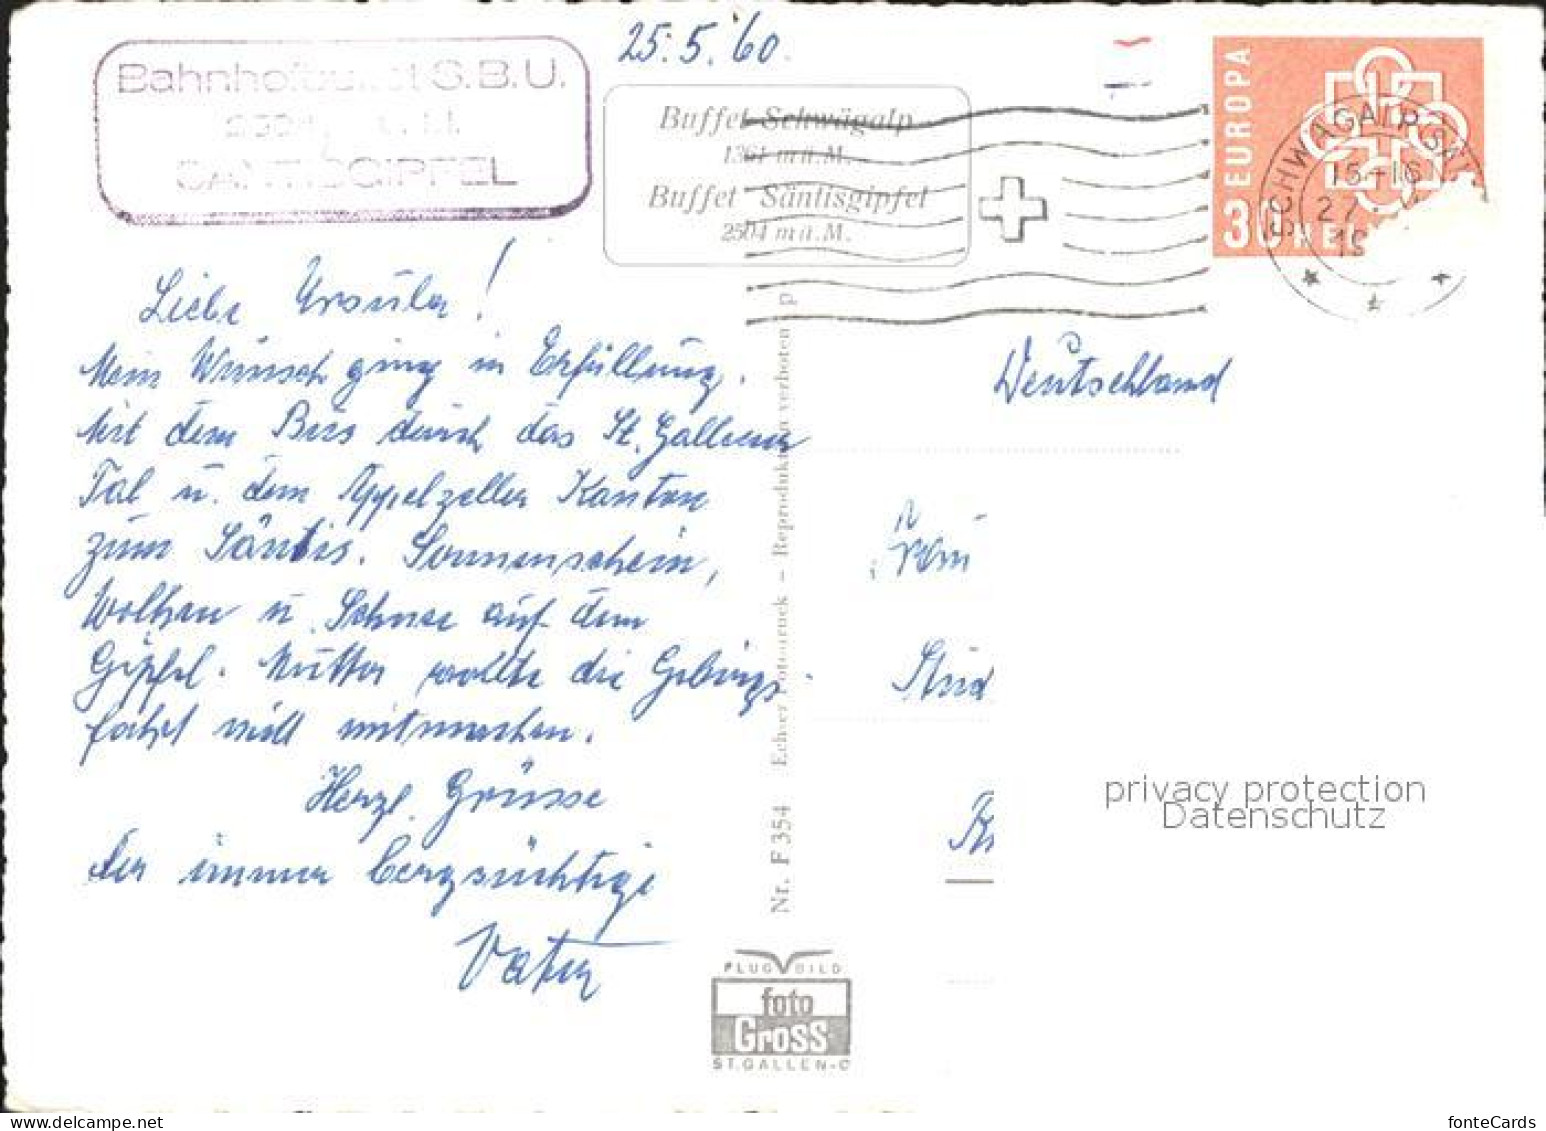 25.5.60.
Bahnhofbuffet S.B.U.
SÄNTISGIPFEL
Buffet Schwägalp
1361 m ü. M.
Buffet Säntisgipfel
2504 m ü. M.
EUROPA
30 HE
SCHWÄGALP (SÄ
15-16
27.
19
Liebe Ursula!
Mein Wunsch ging in Erfüllung.
Mit dem Bus durch das St. Gallener
Tal u. dem Appelzeller Kanton
zum Säntis. Sonnenschein,
Wolken u. Schnee auf dem
Gipfel. Mutter wollte die Gebirgs-
fahrt nicht mitmachen.
Herzl. Grüsse
der immer bergsüchtige
Vater
Deutschland
Stud
Nr. F 354 Echter Fotodruck – Reproduktion verboten p
FLUG BILD
foto
Gross
ST. GALLEN-O
privacy protection
Datenschutz
fonteCards